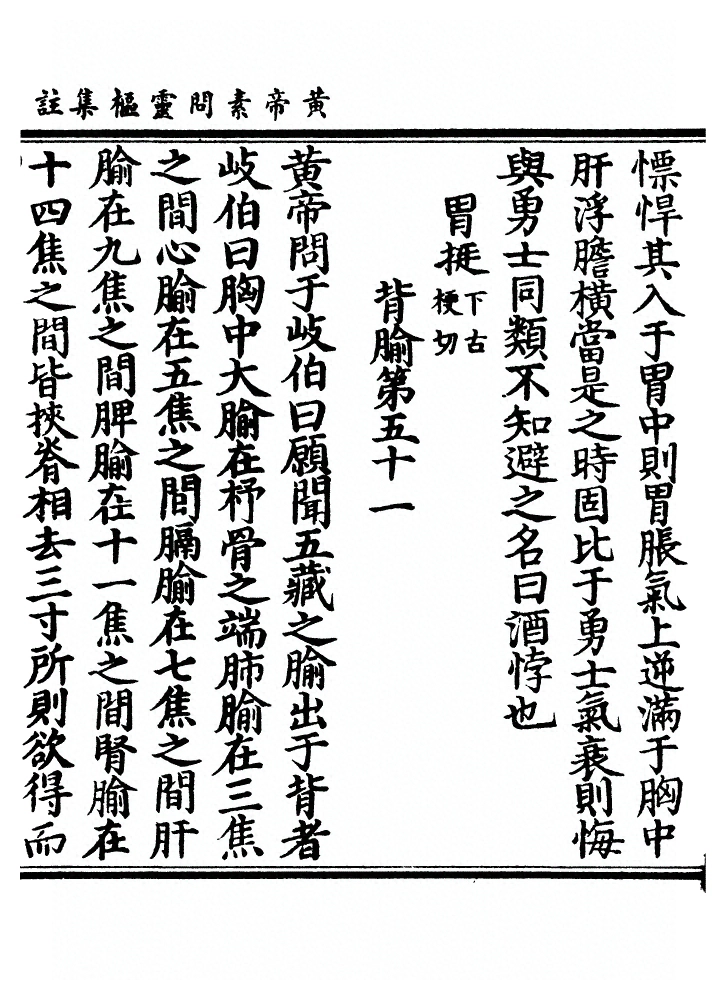 黃帝素問靈樞集註
慓悍其入于胃中則胃脹氣上逆滿于胸中
肝浮膽橫當是之時固比于勇士氣衰則悔
與勇士同類不知避之名曰酒悖也
胃挺下古梗切
背腧第五十一
黃帝問于岐伯曰願聞五藏之腧出于背者
岐伯曰胸中大腧在杼骨之端肺腧在三焦
之間心腧在五焦之間膈腧在七焦之間肝
腧在九焦之間脾腧在十一焦之間腎腧在
十四焦之間皆挾脊相去三寸所則欲得而